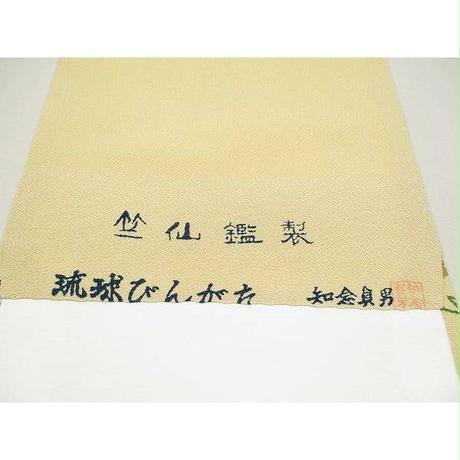 竺仙鑑製
琉球びんがた 知念貞男